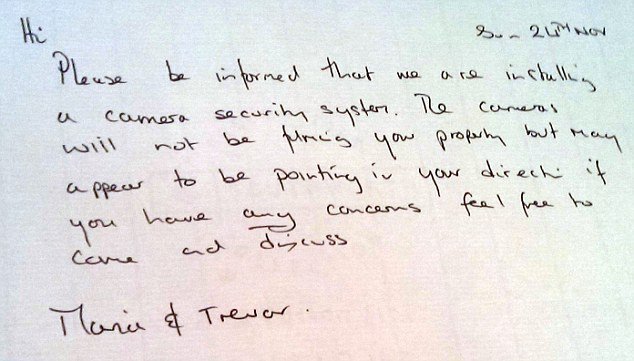 Hi
Sun 24TH NOV
Please be informed that we are installing
a camera security system. The cameras
will not be filming your property but may
appear to be pointing in your direction if
you have any concerns feel free to
come and discuss
Maria & Trevor.